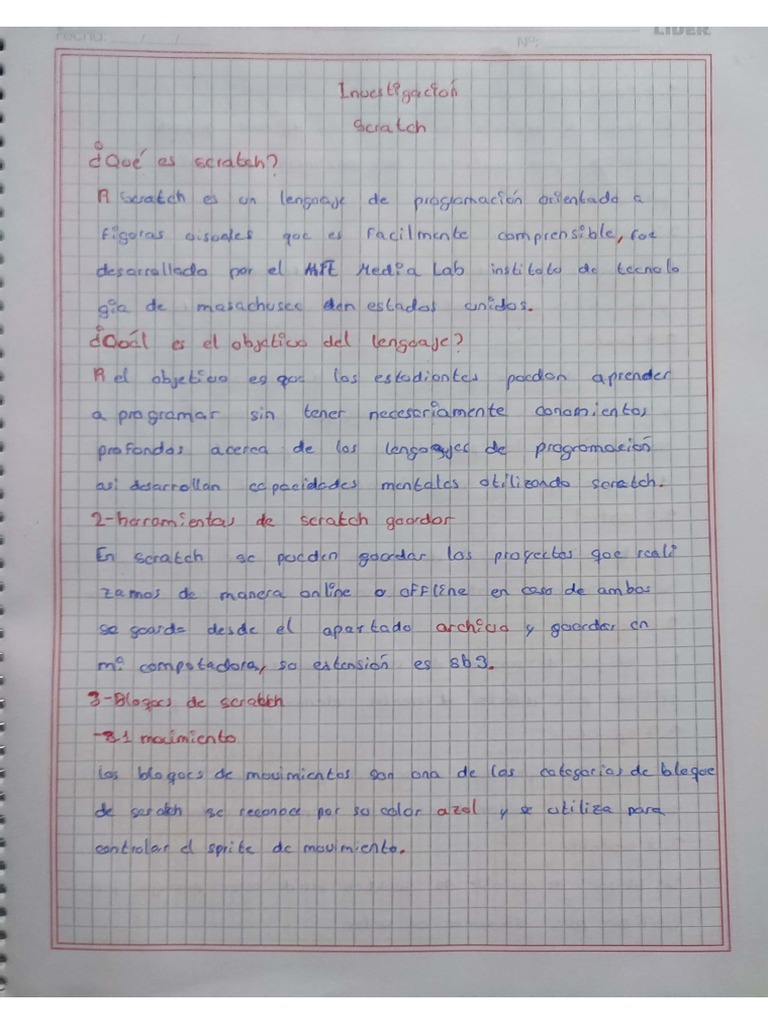 Fecha: / /
Nº:
LIDER
Investigación
Scratch
¿Qué es scratch?
R Scratch es un lenguaje de programación orientado a
figuras visuales que es Facilmente comprensible, fue
desarrollado por el MIT Media Lab instituto de tecnolo
gia de masachusee den estados unidos.
¿Cuál es el objetivo del lenguaje?
R el objetivo es que los estudiantes puedan aprender
a programar sin tener necesariamente conomientos
profundos acerca de los lenguajes de programación
asi desarrollan capacidades mentales utilizando scratch.
2-herramientas de scratch guardar
En scratch se pueden guardar los proyectos que reali
zamos de manera online o OFFline en caso de ambos
se guarda desde el apartado archivo y guardar en
mi computadora, su extensión es sb3.
3-Bloques de scratch
-3.1 movimiento
Los bloques de movimientos son una de las categorias de bloque
de scratch se reconoce por su color azul y se utiliza para
controlar el sprite de movimiento.